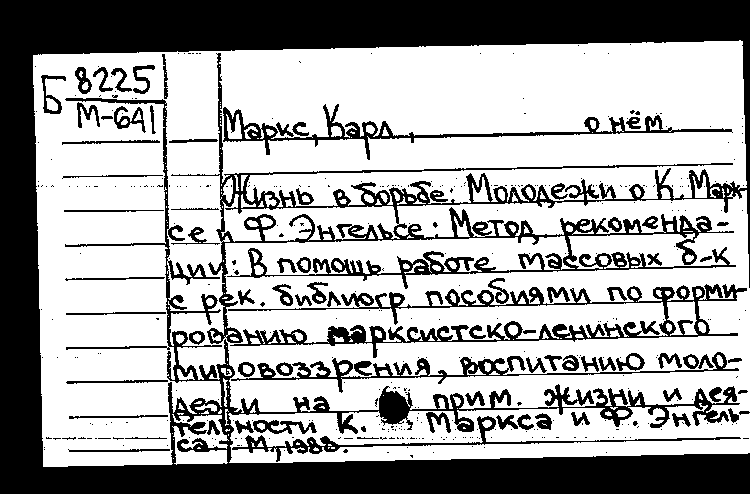 Б 8225
М-641
Маркс, Карл, о нём.
Жизнь в борьбе: Молодежи о К. Марк-
се и Ф. Энгельсе: Метод. рекоменда-
ции: В помощь работе массовых б-к
с рек. библиогр. пособиями по форми-
рованию марксистско-ленинского
мировоззрения, воспитанию моло-
дежи на прим. жизни и дея-
тельности К. Маркса и Ф. Энгель-
са.- М., 1988.